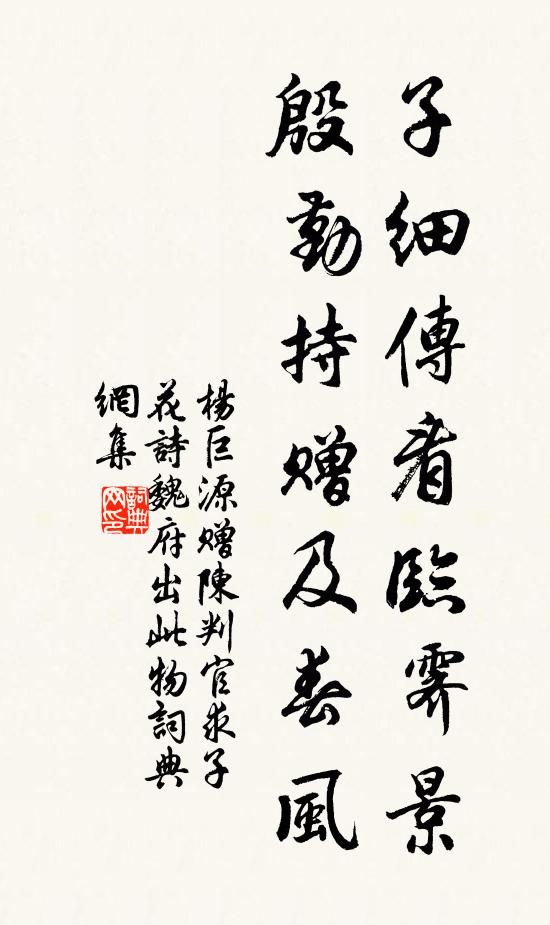 子細傳看臨霽景
殷勤持贈及春風
楊巨源贈陳判官求子
花詩魏府出此物詞典
網集
詞典
网印